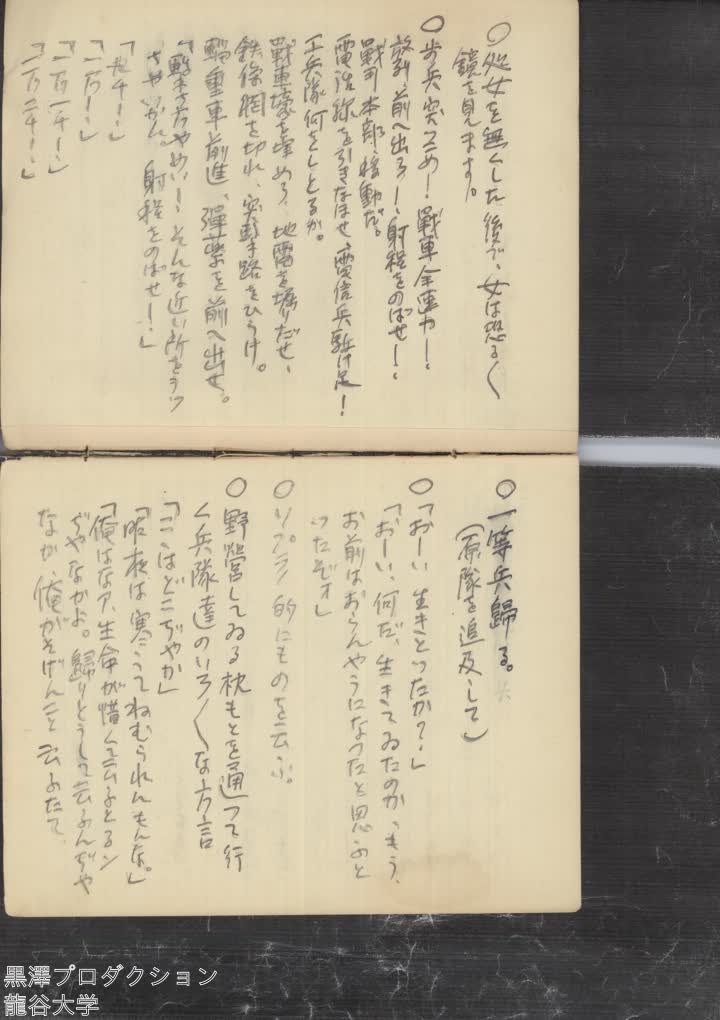 〇処女を無くした後で、女は恐る〱
鏡を見ます。
〇歩兵突っこめ!戰車全速力!
前へ出ろ!、射程をのばせ!、
戰斗本部、移動だ。
電話線を引きなほせ、電信兵駈け足!
工兵隊何をしとるか。
戰車壕を埋めろ、地雷を堀りだせ、
鉄條網を切れ、突撃路をひらけ。
輜重車前進、彈藥を前へ出せ。
「撃ち方やめい!そんな近い所をうつ
射程をのばせ!」
「九千!」
「一万!」
「一万一千!」
「一万二千!」
〇一等兵歸る。
(原隊を追及して)
〇「おーい 生きとったか?」
「おーい、何だ、生きてゐたのか、もう、
お前はおらんやうになったと思ふと
ったぞオ」
〇リフラン的にものを云ふ。
〇野營してゐる枕もとを通って行
く兵隊達のいろ〱な方言
「こゝはどこぢやか」
「昭夜は寒うてねむられんもんな。」
「俺はなア、生命が惜くて云ふとるン
ぢやなかよ。歸りとうして云ふんぢや
なか、俺がそげんこと云ふたて、
黒澤プロダクション
龍谷大学